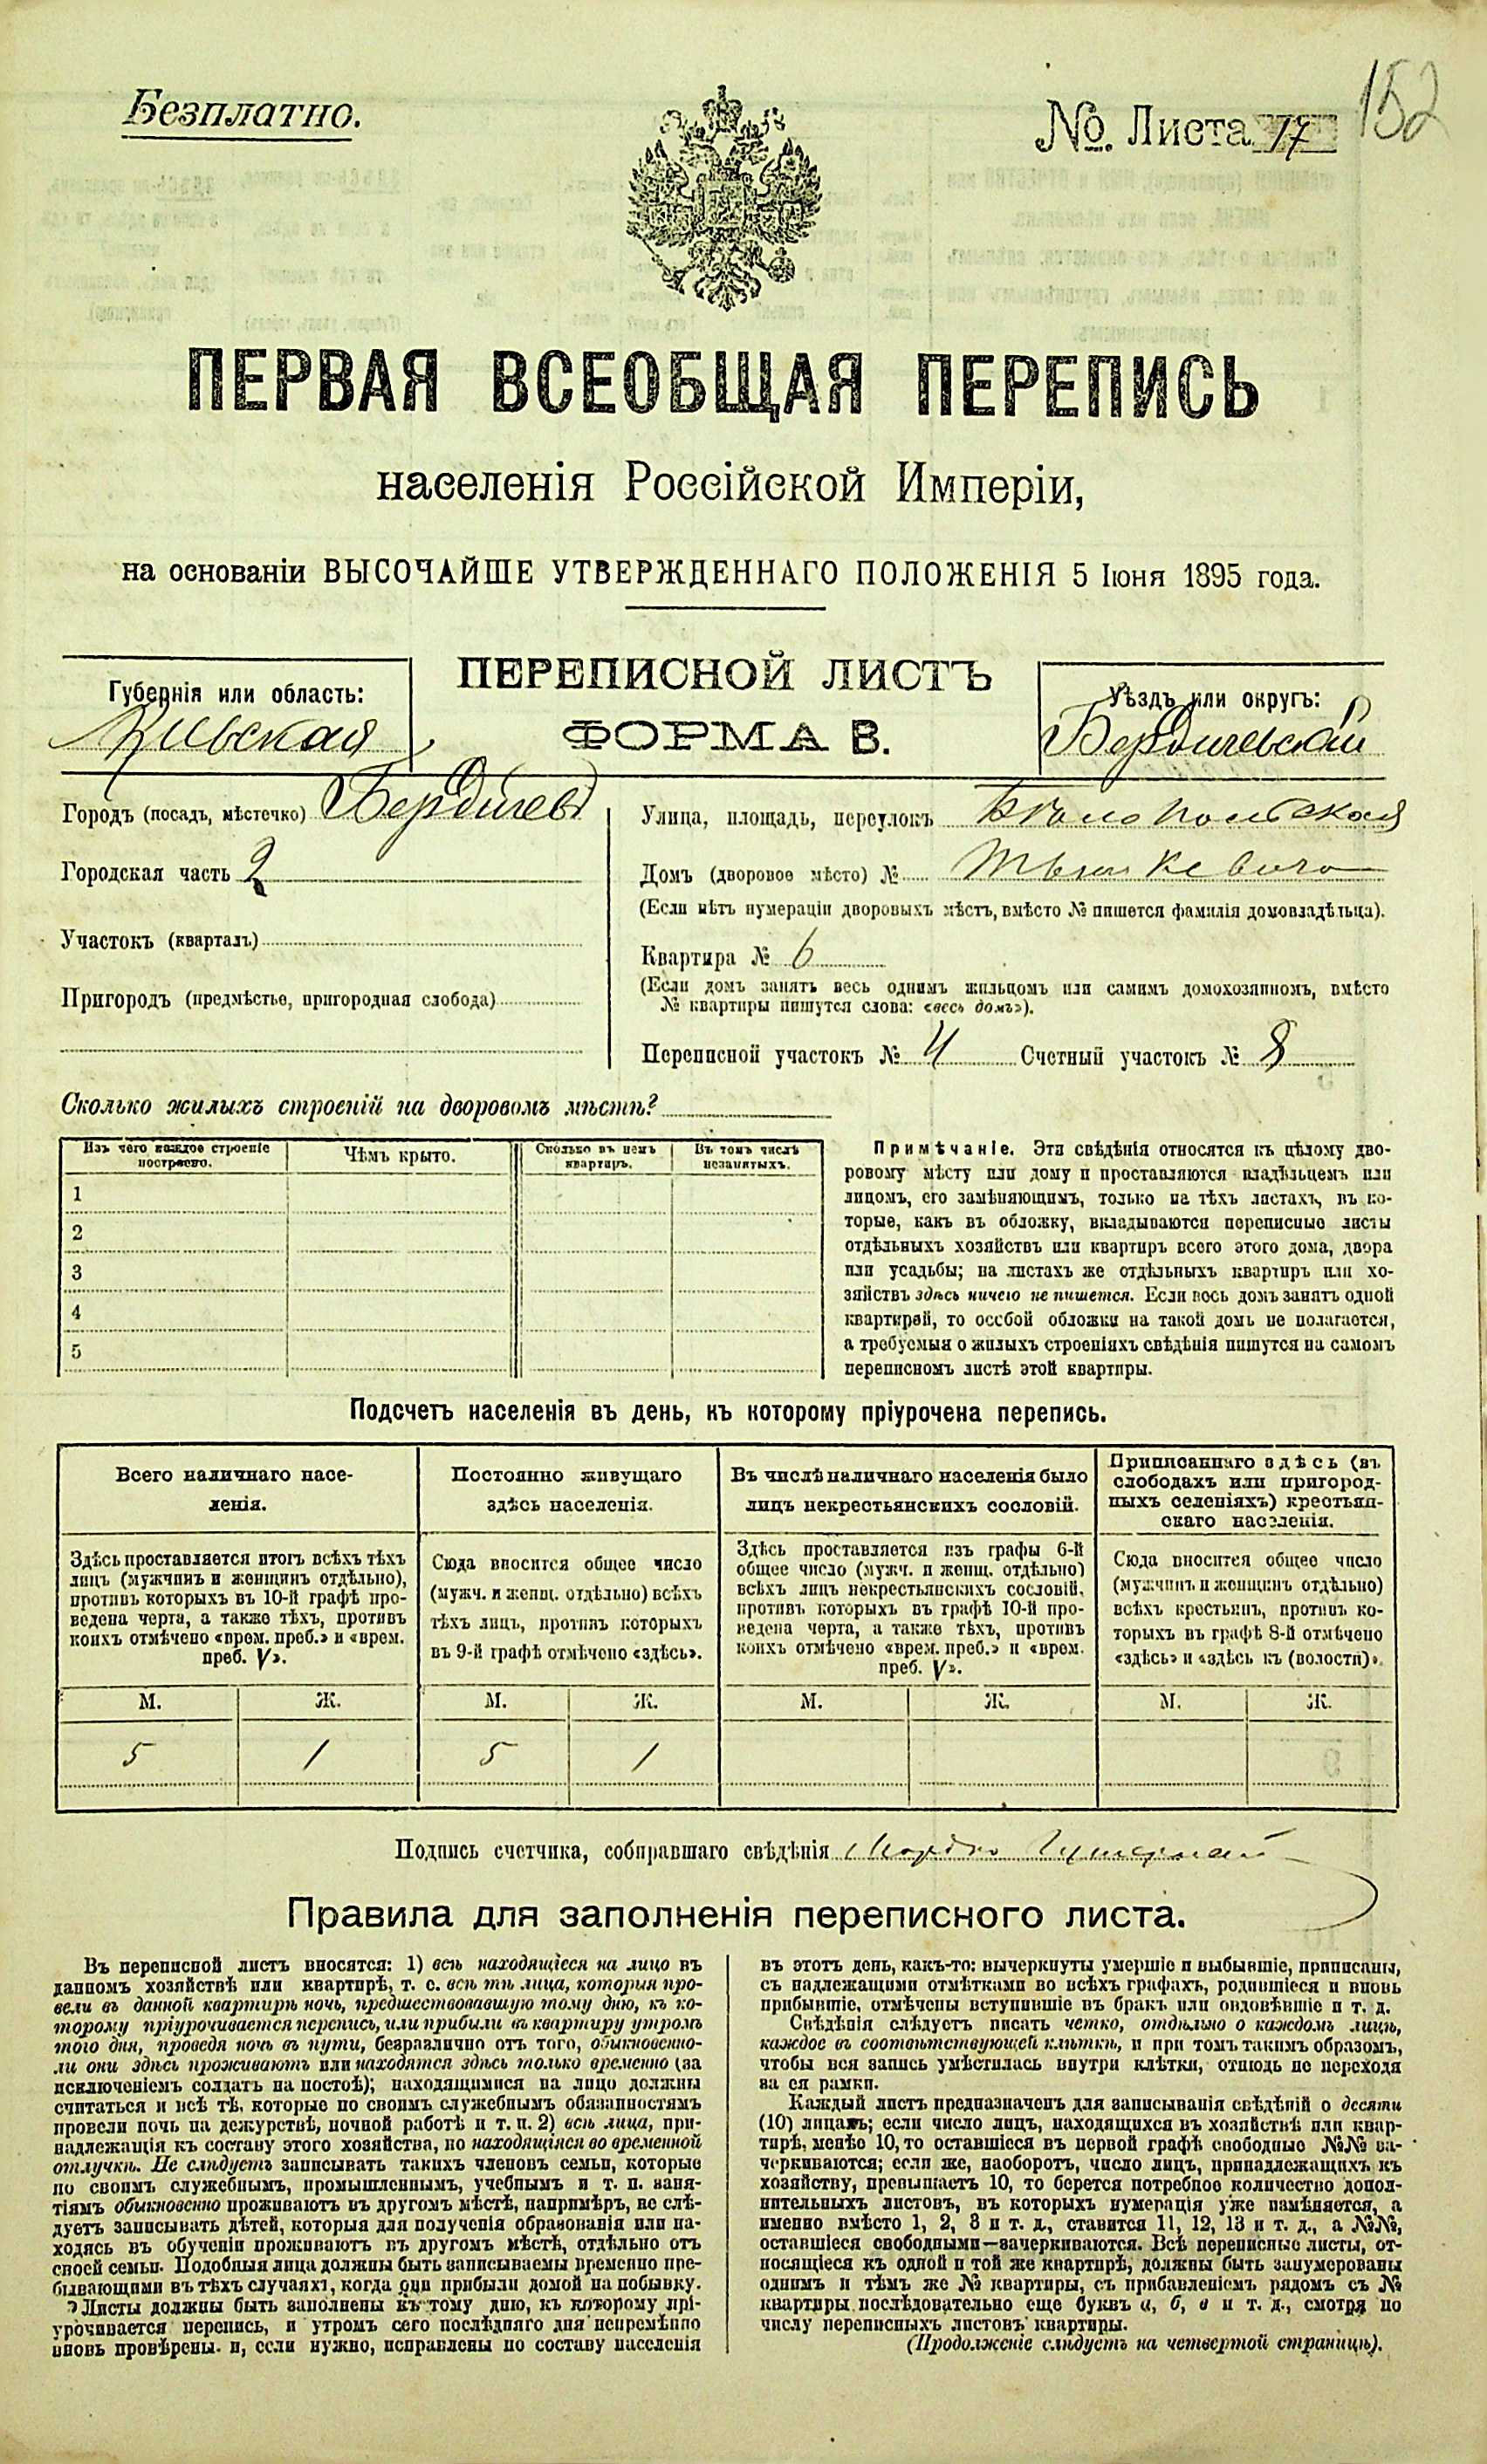 Безплатно.
№ Листа 17
152
ПЕРВАЯ ВСЕОБЩАЯ ПЕРЕПИСЬ
населенія Россійской Имперіи,
на основаніи ВЫСОЧАЙШЕ УТВЕРЖДЕННАГО ПОЛОЖЕНІЯ 5 Іюня 1895 года.
ПЕРЕПИСНОЙ ЛИСТЪ
ФОРМА В.
Губернія или область:
Кіевская
Уѣздъ или округъ:
Бердичевскій
Городъ (посадъ, мѣстечко) Бердичевъ
Городская часть 2
Участокъ (кварталъ)
Пригородъ (предмѣстье, пригородная слобода)
Улица, площадь, переулокъ Бѣлопольская
Домъ (дворовое мѣсто) № Тышкевича
(Если нѣтъ нумераціи дворовыхъ мѣстъ, вмѣсто № пишется фамилія домовладѣльца).
Квартира № 6
(Если домъ занятъ весь однимъ жильцомъ или самимъ домохозяиномъ, вмѣсто
№ квартиры пишутся слова: «весь домъ»).
Переписной участокъ № 4 Счетный участокъ № 8
Сколько жилыхъ строеній на дворовомъ мѣстѣ?
Изъ чего каждое строеніе
построено.
Чѣмъ крыто.
Сколько въ немъ
квартиръ.
Въ томъ числѣ
незанятыхъ.
1
2
3
4
5
Примѣчаніе. Эти свѣдѣнія относятся къ цѣлому дво-
ровому мѣсту или дому и проставляются владѣльцемъ или
лицомъ, его замѣняющимъ, только на тѣхъ листахъ, въ ко-
торые, какъ въ обложку, вкладываются переписные листы
отдѣльныхъ хозяйствъ или квартиръ всего этого дома, двора
или усадьбы; на листахъ же отдѣльныхъ квартиръ или хо-
зяйствъ здѣсь ничего не пишется. Если весь домъ занятъ одной
квартирой, то особой обложки на такой домъ не полагается,
а требуемыя о жилыхъ строеніяхъ свѣдѣнія пишутся на самомъ
переписномъ листѣ этой квартиры.
Подсчетъ населенія въ день, къ которому пріурочена перепись.
Всего наличнаго насе-
ленія.
Здѣсь проставляется итогъ всѣхъ тѣхъ
лицъ (мужчинъ и женщинъ отдѣльно),
противъ которыхъ въ 10-й графѣ про-
ведена черта, а также тѣхъ, противъ
коихъ отмѣчено «врем. преб.» и «врем.
преб. V».
Постоянно живущаго
здѣсь населенія.
Сюда вносится общее число
(мужч. и женщ. отдѣльно) всѣхъ
тѣхъ лицъ, противъ которыхъ
въ 9-й графѣ отмѣчено «здѣсь».
Въ числѣ наличнаго населенія было
лицъ некрестьянскихъ сословій.
Здѣсь проставляется изъ графы 6-й
общее число (мужч. и женщ. отдѣльно)
всѣхъ лицъ некрестьянскихъ сословій,
противъ которыхъ въ графѣ 10-й про-
ведена черта, а также тѣхъ, противъ
коихъ отмѣчено «врем. преб.» и «врем.
преб. V».
Приписаннаго здѣсь (въ
слободахъ или пригород-
ныхъ селеніяхъ) крестьян-
скаго населенія.
Сюда вносится общее число
(мужчинъ и женщинъ отдѣльно)
всѣхъ крестьянъ, противъ ко-
торыхъ въ графѣ 8-й отмѣчено
«здѣсь» и «здѣсь къ (волости)».
М. Ж. М. Ж. М. Ж. М. Ж.
5 1 5 1
Подпись счетчика, собиравшаго свѣдѣнія
Правила для заполненія переписного листа.
Въ переписной листъ вносятся: 1) всѣ находящіеся на лицо въ
данномъ хозяйствѣ или квартирѣ, т. е. всѣ тѣ лица, которыя про-
вели въ данной квартирѣ ночь, предшествовавшую тому дню, къ ко-
торому пріурочивается перепись, или прибыли въ квартиру утромъ
того дня, проведя ночь въ пути, безразлично отъ того, обыкновенно-
ли они здѣсь проживаютъ или находятся здѣсь только временно (за
исключеніемъ солдатъ на постоѣ); находящимися на лицо должны
считаться и всѣ тѣ, которые по своимъ служебнымъ обязанностямъ
провели ночь на дежурствѣ, ночной работѣ и т. п. 2) всѣ лица, при-
надлежащія къ составу этого хозяйства, но находящіяся во временной
отлучкѣ. Не слѣдуетъ записывать такихъ членовъ семьи, которые
по своимъ служебнымъ, промышленнымъ, учебнымъ и т. п. заня-
тіямъ обыкновенно проживаютъ въ другомъ мѣстѣ, напримѣръ, не слѣ-
дуетъ записывать дѣтей, которыя для полученія образованія или на-
ходясь въ обученіи проживаютъ въ другомъ мѣстѣ, отдѣльно отъ
своей семьи. Подобныя лица должны быть записываемы временно пре-
бывающими въ тѣхъ случаяхъ, когда они прибыли домой на побывку.
Листы должны быть заполнены къ тому дню, къ которому прі-
урочивается перепись, и утромъ сего послѣдняго дня непремѣнно
вновь провѣрены и, если нужно, исправлены по составу населенія
въ этотъ день, какъ-то: вычеркнуты умершіе и выбывшіе, приписаны,
съ надлежащими отмѣтками во всѣхъ графахъ, родившіеся и вновь
прибывшіе, отмѣчены вступившіе въ бракъ или овдовѣвшіе и т. д.
Свѣдѣнія слѣдуетъ писать четко, отдѣльно о каждомъ лицѣ,
каждое въ соотвѣтствующей клѣткѣ, и при томъ такимъ образомъ,
чтобы вся запись умѣстилась внутри клѣтки, отнюдь не переходя
за ея рамки.
Каждый листъ предназначенъ для записыванія свѣдѣній о десяти
(10) лицахъ; если число лицъ, находящихся въ хозяйствѣ или квар-
тирѣ, менѣе 10, то оставшіеся въ первой графѣ свободные №№ за-
черкиваются; если же, наоборотъ, число лицъ, принадлежащихъ къ
хозяйству, превышаетъ 10, то берется потребное количество допол-
нительныхъ листовъ, въ которыхъ нумерація уже измѣняется, а
именно вмѣсто 1, 2, 3 и т. д., ставится 11, 12, 13 и т. д., а №№,
оставшіеся свободными—зачеркиваются. Всѣ переписные листы, от-
носящіеся къ одной и той же квартирѣ, должны быть занумерованы
однимъ и тѣмъ же № квартиры, съ прибавленіемъ рядомъ съ №
квартиры послѣдовательно еще буквъ а, б, в и т. д., смотря по
числу переписныхъ листовъ квартиры.
(Продолженіе слѣдуетъ на четвертой страницѣ).